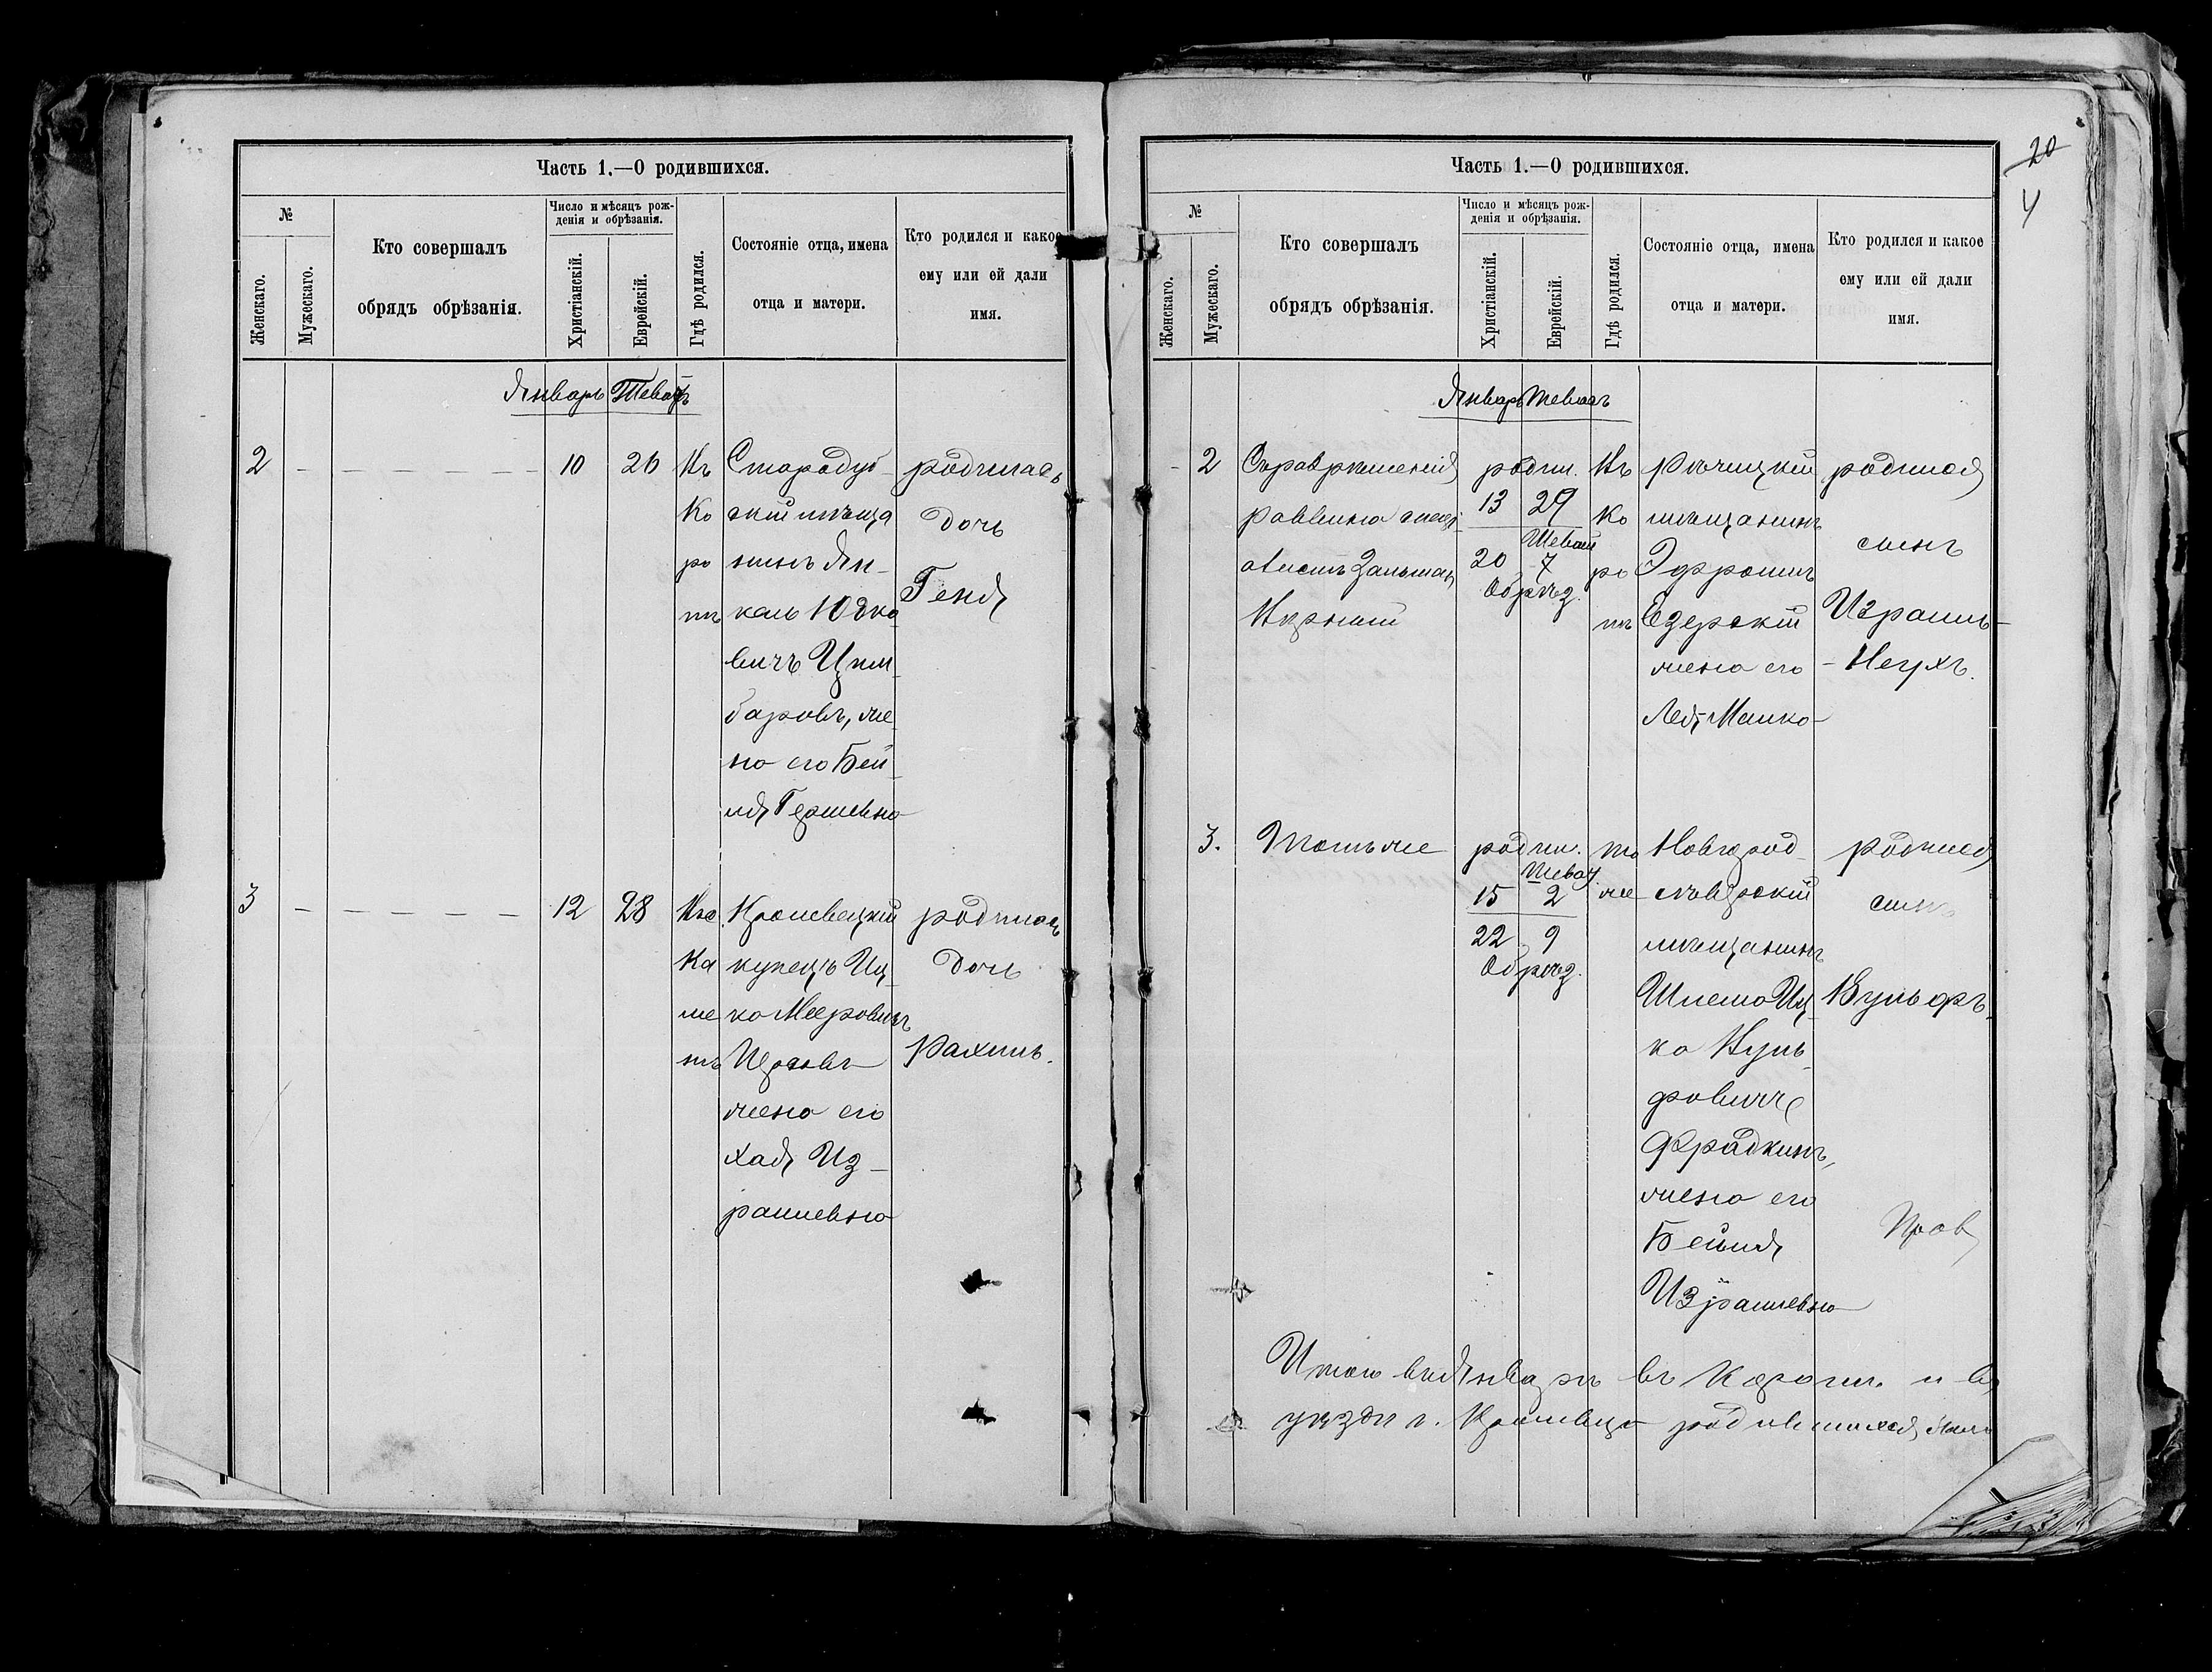 Часть 1.—О родившихся.
№
Женскаго.
Мужескаго.
Кто совершалъ
обрядъ обрѣзанія.
Число и мѣсяцъ рож-
денія и обрѣзанія.
Христіанскій.
Еврейскій.
Гдѣ родился.
Состояніе отца, имена
отца и матери.
Кто родился и какое
ему или ей дали
имя.
Январь Теватъ
2 - - - - - - 10 26
Въ
Ко
ро
пѣ
Стародуб-
скій мѣща
нинъ Ян-
кель Юдко
вичъ Цим
баровъ, же
на его Бей-
ля Гершевна
родилась
дочь
Геня
3 - - - - - - 12 28
Ка
ме
нѣ
Кролевецкій
купецъ Иц-
ко Мееровичъ
жена его
Хая Из-
раилевна
родилась
дочь
Рахиль.
Часть 1.—О родившихся.
20
4
№
Женскаго.
Мужескаго.
Кто совершалъ
обрядъ обрѣзанія.
Число и мѣсяцъ рож-
денія и обрѣзанія.
Христіанскій.
Еврейскій.
Гдѣ родился.
Состояніе отца, имена
отца и матери.
Кто родился и какое
ему или ей дали
имя.
Январь Теватъ
- 2
Съ разрѣшенія
раввина
Залман
родил.
13 29
Шеват
20 7
Обрѣз.
Въ
Ко
ро
пѣ
Рѣчицкій
мѣщанинъ
Эфроимъ
Езерскій
жена его
Лея Малка
родился
сынъ
Израиль-
-Неухъ.
3. Тотъ же
родил.
Шеват
15 2
22 9
Обрѣз.
то
же
Новгород-
сѣверскій
мѣщанинъ
Шлема Иц-
ко Вуль
фовичъ
Фрадкинъ,
жена его
Бейля
Израилевна
родился
сынъ
Вульфъ.
Итого въ Январѣ въ Коропѣ и въ
уѣздѣ г. Кролевца родившихся